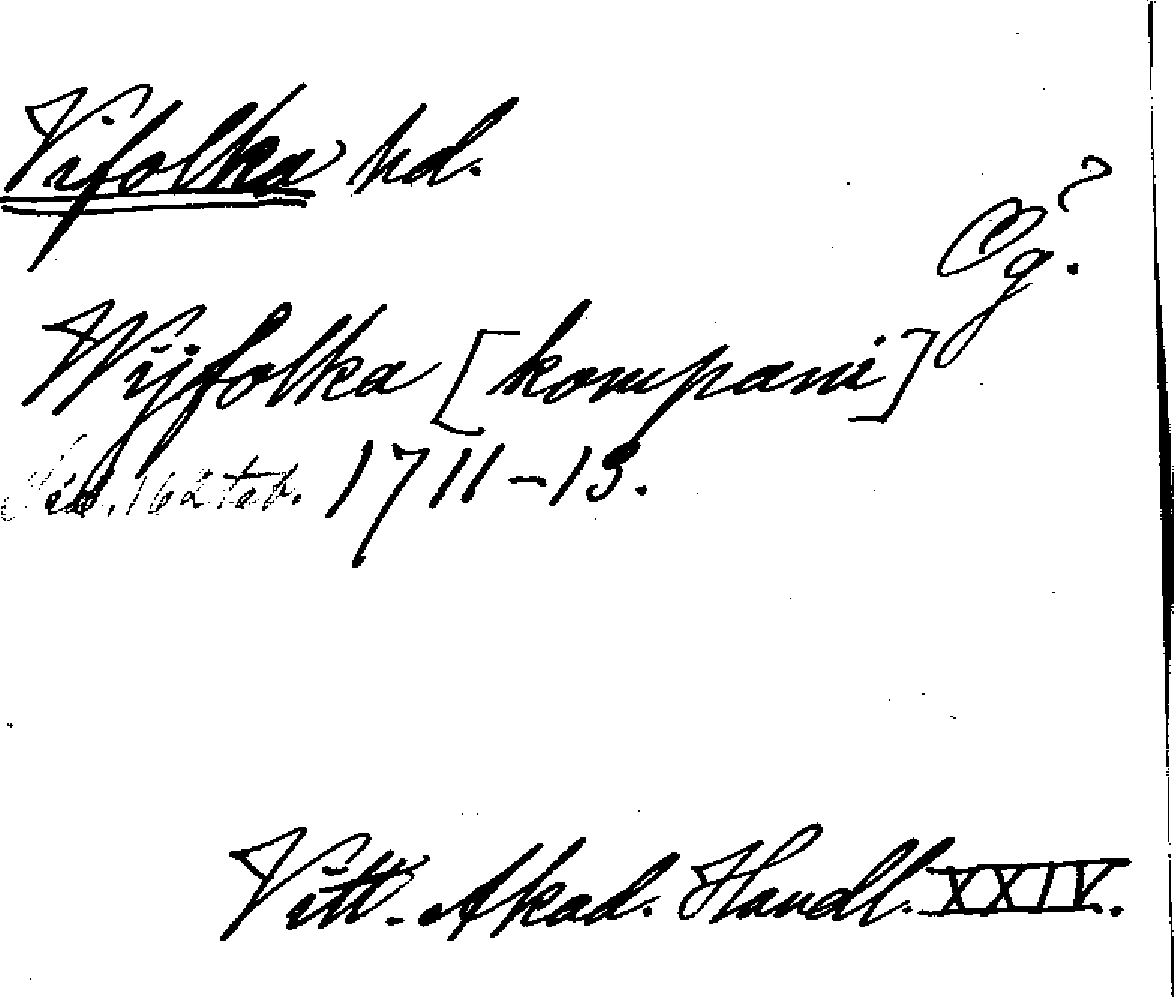 Vifolka hd.
Ög?
Wijfolka [kompani]
Sid. 162 tab. 1711-13.
Vitt. Akad. Handl. XXIV.